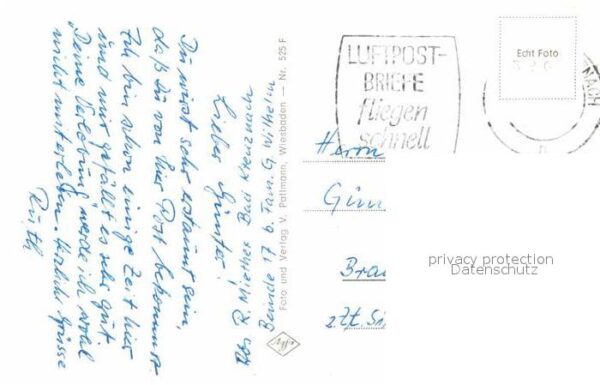 Abs R. Miethes Bad Kreuznach
Beinde 17 b. Fam. G. Wilhelm
Lieber Günter!
Du wirst sehr erstaunt sein,
daß Du von hier Post bekommst.
Ich bin schon einige Zeit hier
und mir gefällt es sehr gut
Deine Verlobung werde ich wohl
nicht miterleben. Herzliche Grüsse
Ruth
Foto und Verlag V. Pattmann, Wiesbaden — Nr. 525 F
Agfa
LUFTPOST-
BRIEFE
fliegen
schnell
Echt Foto
NACH
Herrn
Gün
Bra
z.Zt. Si
privacy protection
Datenschutz